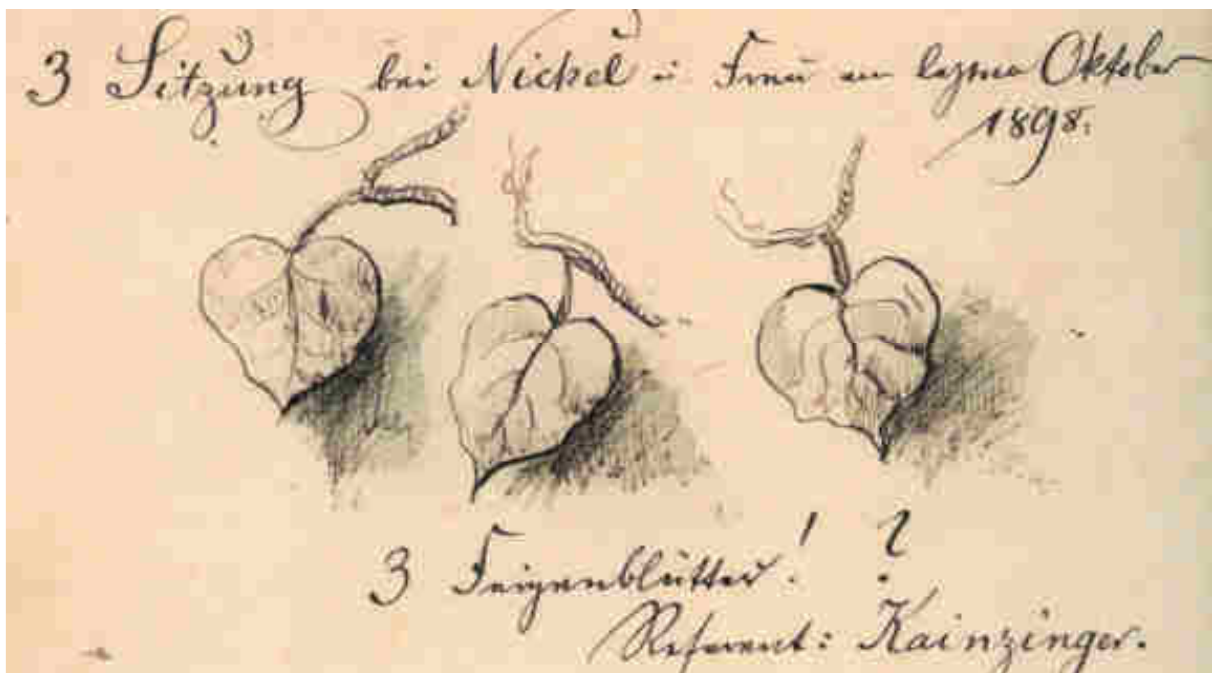 3 Sitzung bei Nickel u Frau am letzten Oktober
1898.
3 Feigenblätter! ?
Referent: Kainzinger.